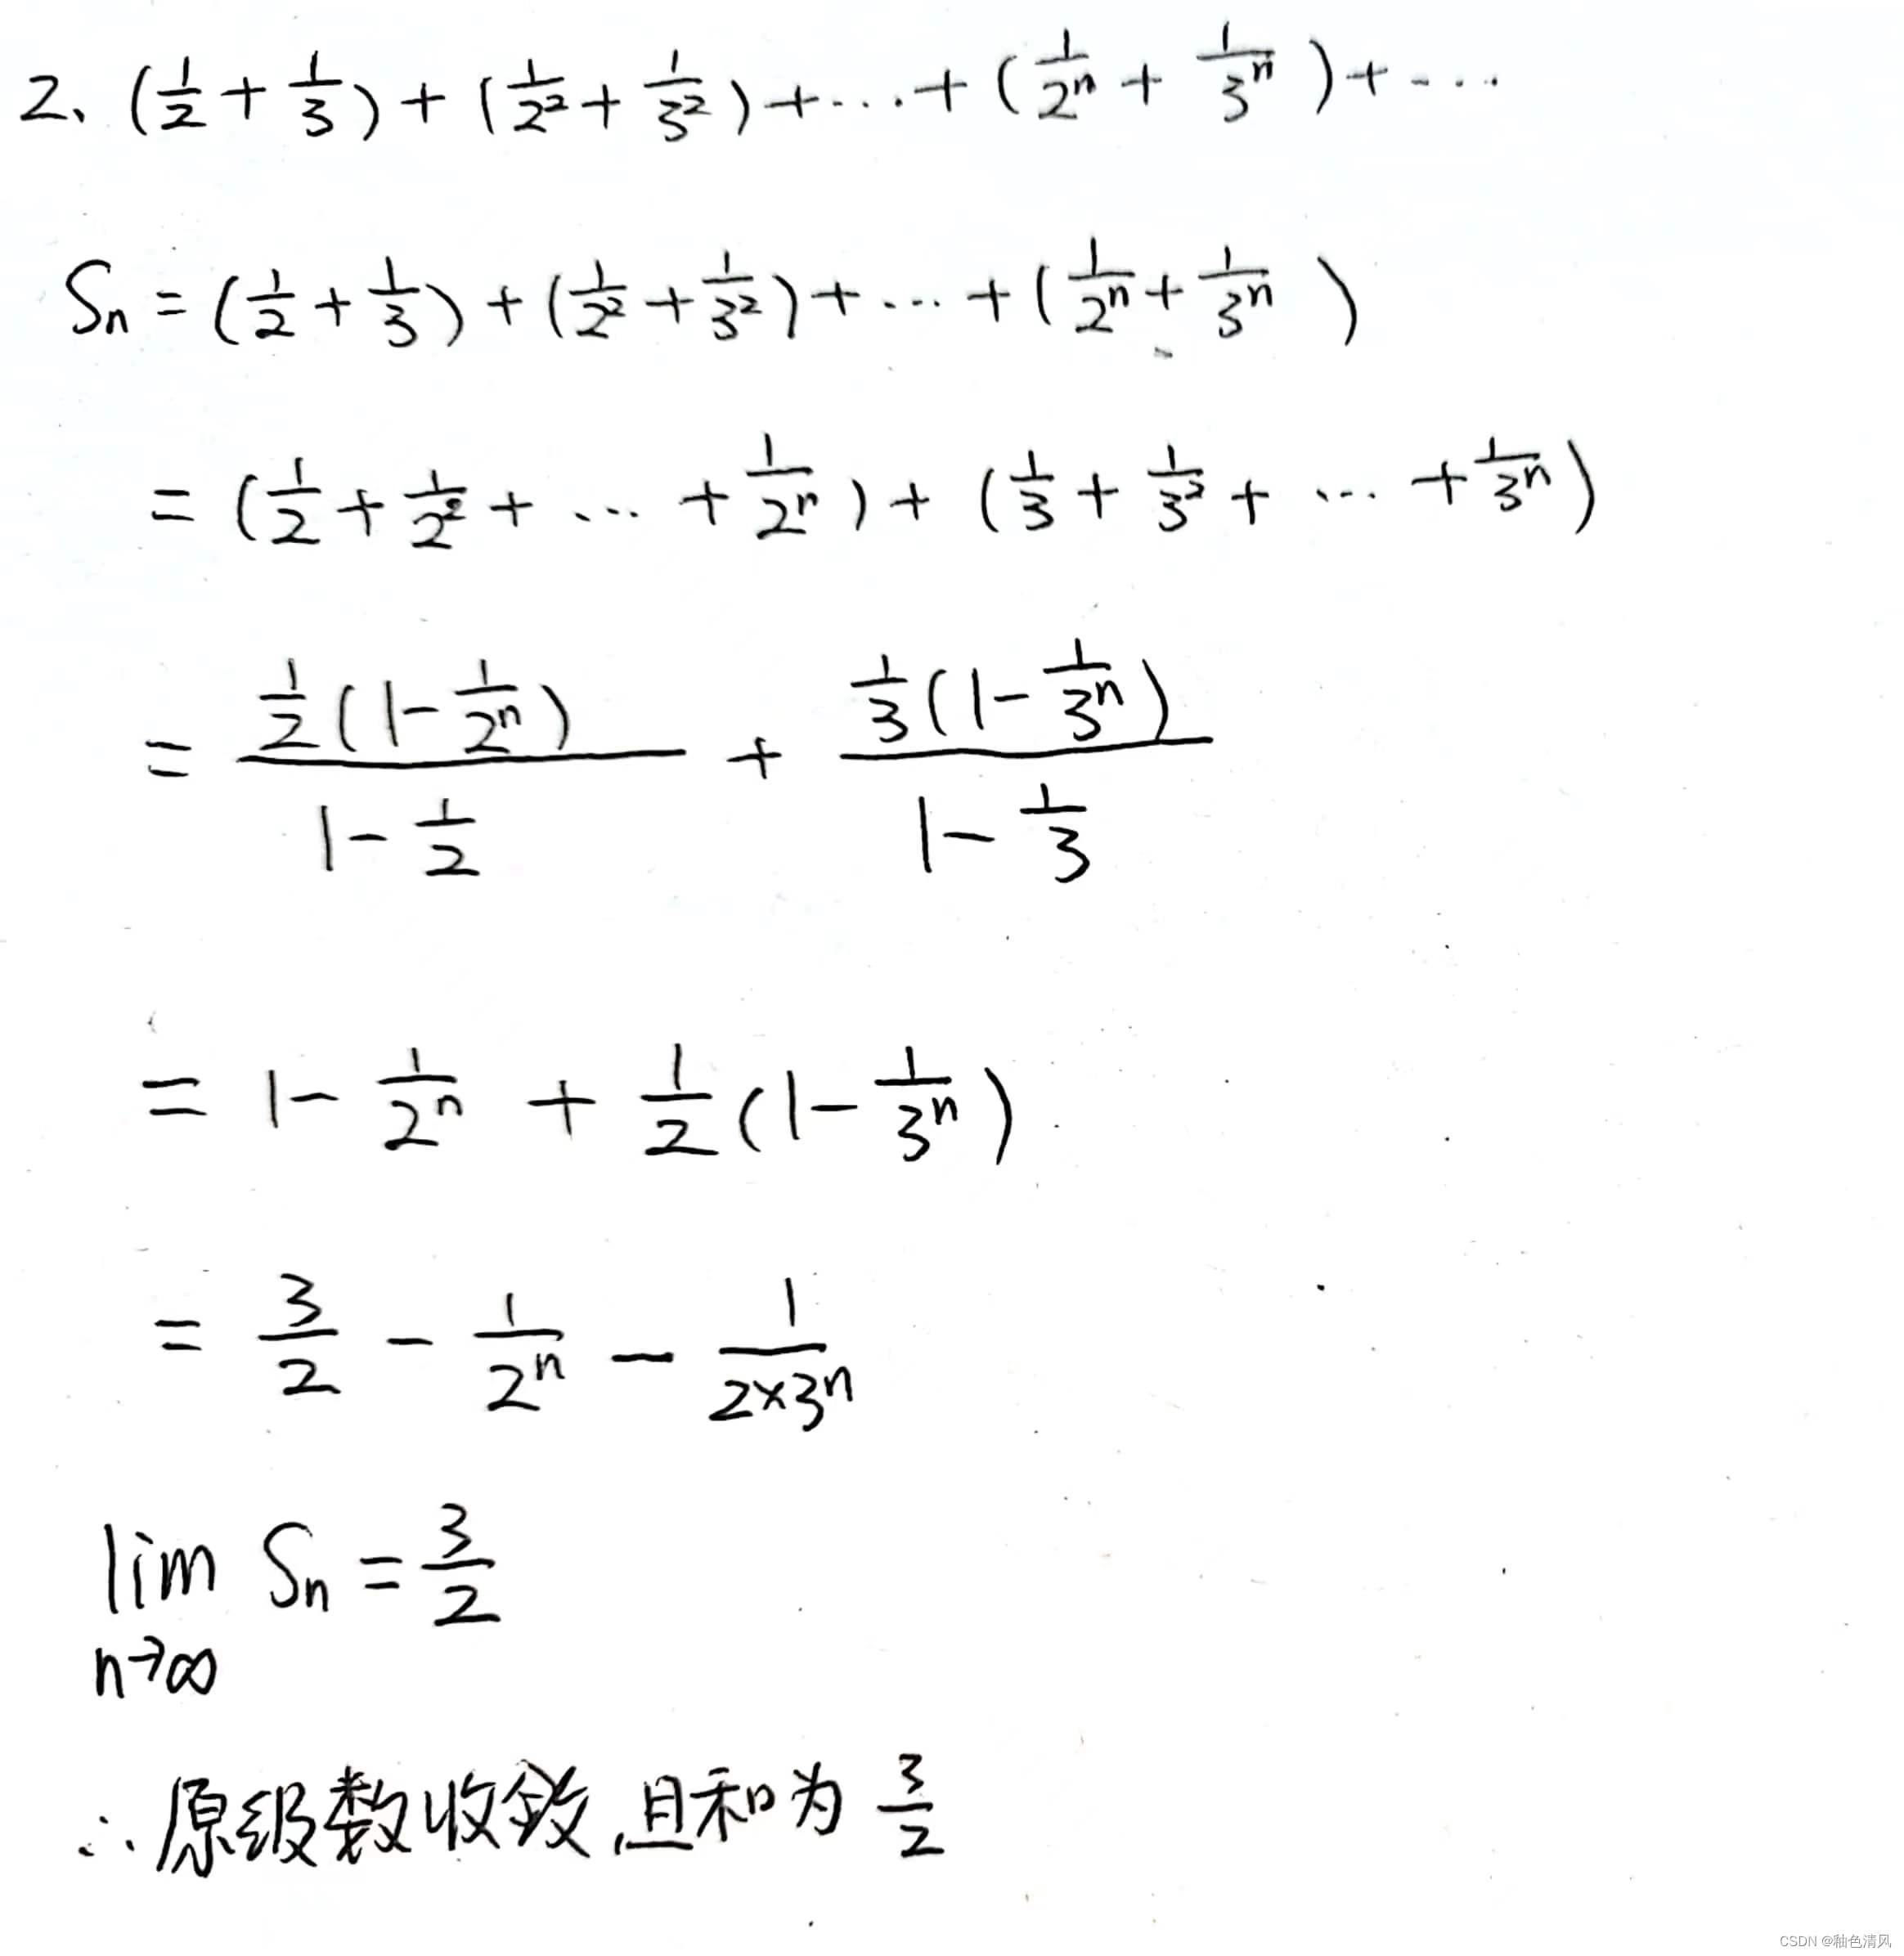 2、(1/2 + 1/3) + (1/2² + 1/3²) + ··· + (1/2ⁿ + 1/3ⁿ) + ···
Sn = (1/2 + 1/3) + (1/2² + 1/3²) + ··· + (1/2ⁿ + 1/3ⁿ)
= (1/2 + 1/2² + ··· + 1/2ⁿ) + (1/3 + 1/3² + ··· + 1/3ⁿ)
= (1/2(1 - 1/2ⁿ))/(1 - 1/2) + (1/3(1 - 1/3ⁿ))/(1 - 1/3)
= 1 - 1/2ⁿ + 1/2(1 - 1/3ⁿ)
= 3/2 - 1/2ⁿ - 1/(2×3ⁿ)
lim Sn = 3/2
n→∞
∴原级数收敛,且和为 3/2
CSDN @釉色清风